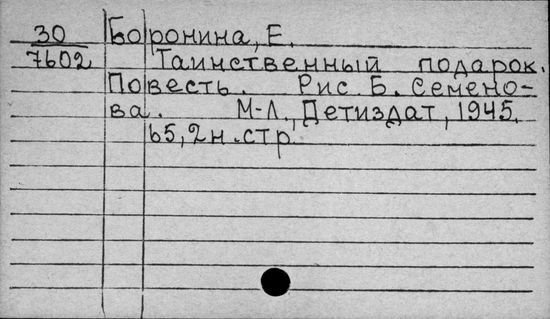 30 Боронина, Е.
7602 Таинственный подарок.
Повесть. Рис Б. Семено-
ва. М-Л., Детиздат, 1945.
65, 2н. стр.